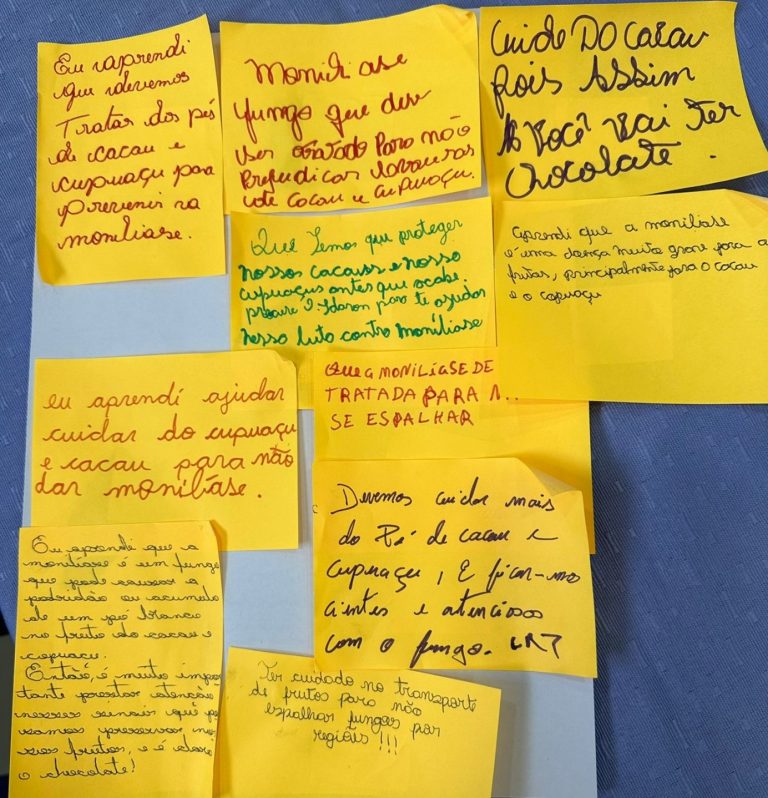 Eu aprendi
que devemos
Tratar dos pés
de cacau e
cupuaçu para
prevenir na
moniliase.
Moniliase
fungo que deve
ser para não
Prejudicar lavouras
de cacau e cupuaçu.
Cuide DO Cacau
pois Assim
Você Vai Ter
Chocolate.
Que Temos que proteger
nossos cacauss e nosso
cupuaçus antes que acabe.
procure Idaron para te ajudar
nesso luto contro monílíase
aprendi que a monilíase
é uma doença muito grave para a
frutas, principalmente para o cacau
e o cupuaçu
eu aprendí ajudar
cuidar do cupuaçu
e cacau para não
dar monilíàse.
QUE A MONILÍASE DE
TRATADA PARA N
SE ESPALHAR
Devemos cuidar mais
do Pé de cacau e
cupuaçu, E ficar-mo
cientes e atenciosos
com o fungo.
Eu aprendi que a
moniliase é um fungo
que pode causar a
podridão ou acumulo
de um pó branco
no fruto do cacau e
cupuaçu.
Então, é muito impor
tante prestar atenção
nesses sinais que po
samos preservar no
sos frutos, e é claro
o chocolate!
Ter cuidado no transporte
de frutos para não
espalhar fungos por
regiões!!!